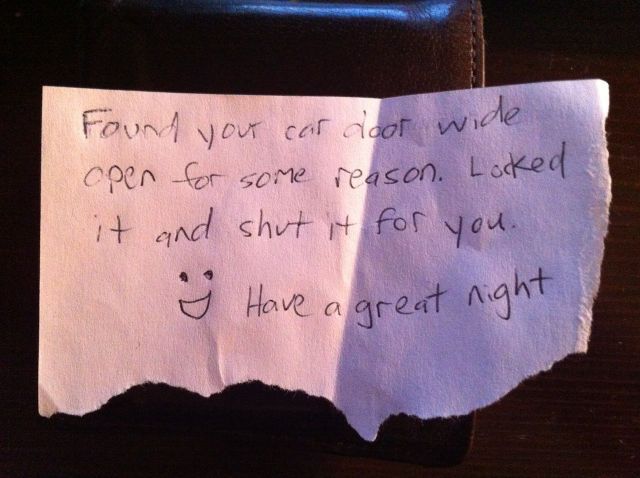 Found your car door wide
open for some reason. Locked
it and shut it for you.
Have a great night